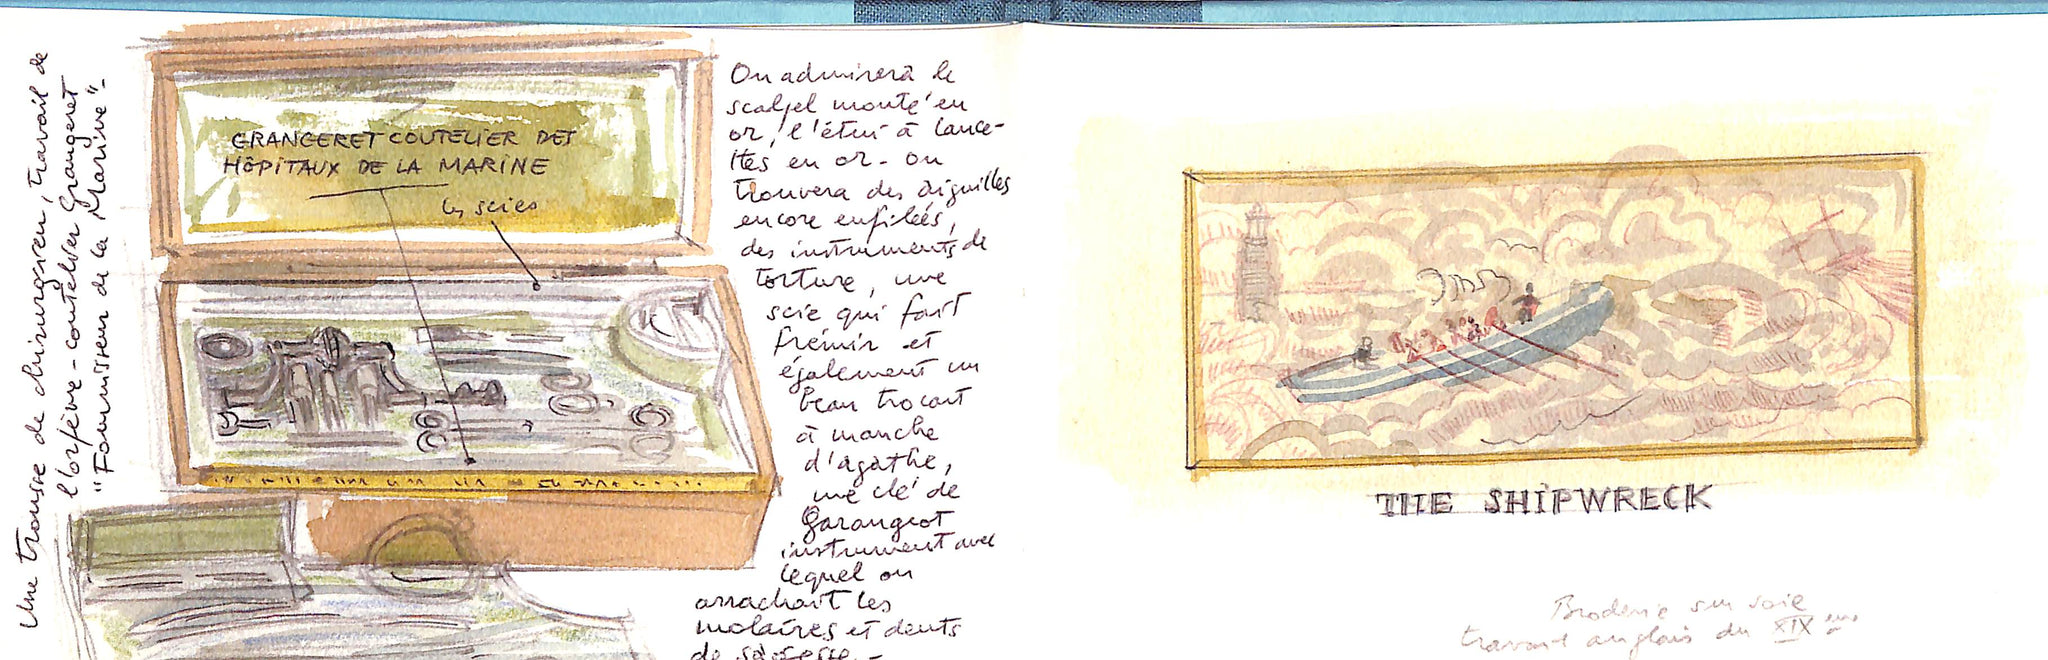 Une trousse de chirurgien, travail de
l'orfèvre-coutelier Grangeret
"Fournisseur de la Marine"-
GRANGERET COUTELIER DES
HÔPITAUX DE LA MARINE
les scies
On admirera le
scalpel monté en
or, l'étui à lance-
ttes en or - on
trouvera des aiguilles
encore enfilées,
des instruments de
torture, une
scie qui fait
frémir et
également un
beau trocart
à manche
d'agathe,
une clé de
Garangeot
instrument avec
lequel on
arrachait les
molaires et dents
de sagesse -
THE SHIPWRECK
Broderie sur soie
travail anglais du XIXème